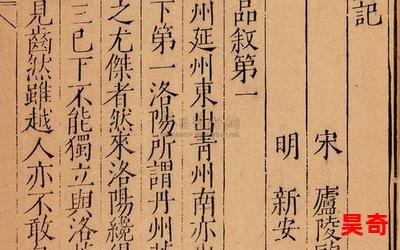 記
宋 廬陵
明 新安
品敘第一
州延州東出青州南亦出
下第一洛陽所謂丹州
之尤傑者然來洛陽纔得
三已下不能獨立與洛
見齒然雖越人亦不敢
昊奇